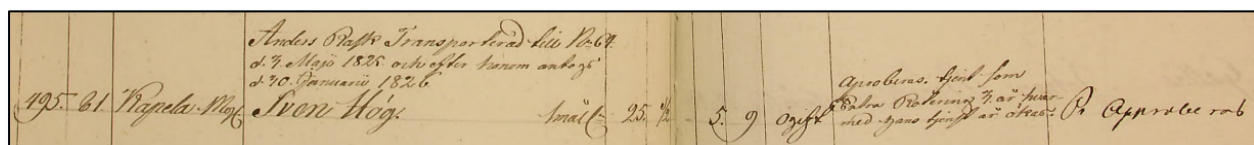 Anders Rask Transporterad till No 64.
d. 3. Maji 1825 och efter honom antogs
d. 30. Januarii 1826
495. 61. Kapela Sven Hög. Smål 25. ½ 5. 9 ogift
Aproberas. tjent som
Extra Rotering 3. år hvar
med hans tjenst är ökad.
Approberas